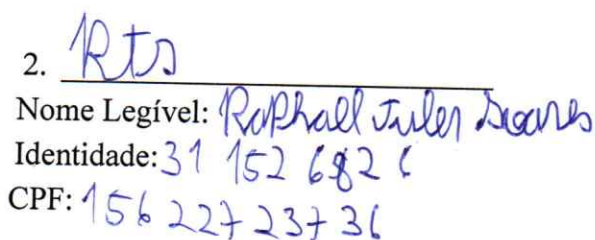 2. RTS
Nome Legível: Raphael Tules Soares
Identidade: 31 152 682 6
CPF: 156 227 237 36